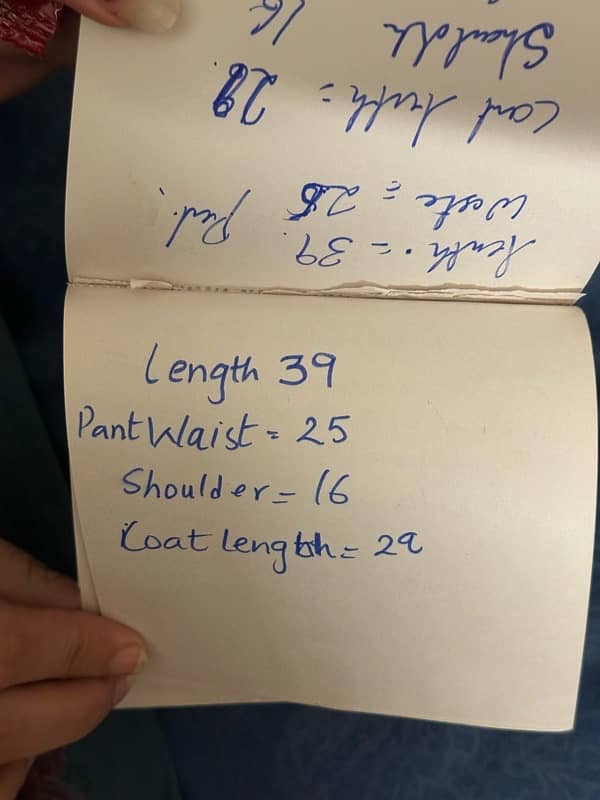 Shoulde 16
Cart lenth = 29
Weste = 25
lenth. = 39.
Length 39
Pant Waist = 25
Shoulder = 16
Coat length = 29